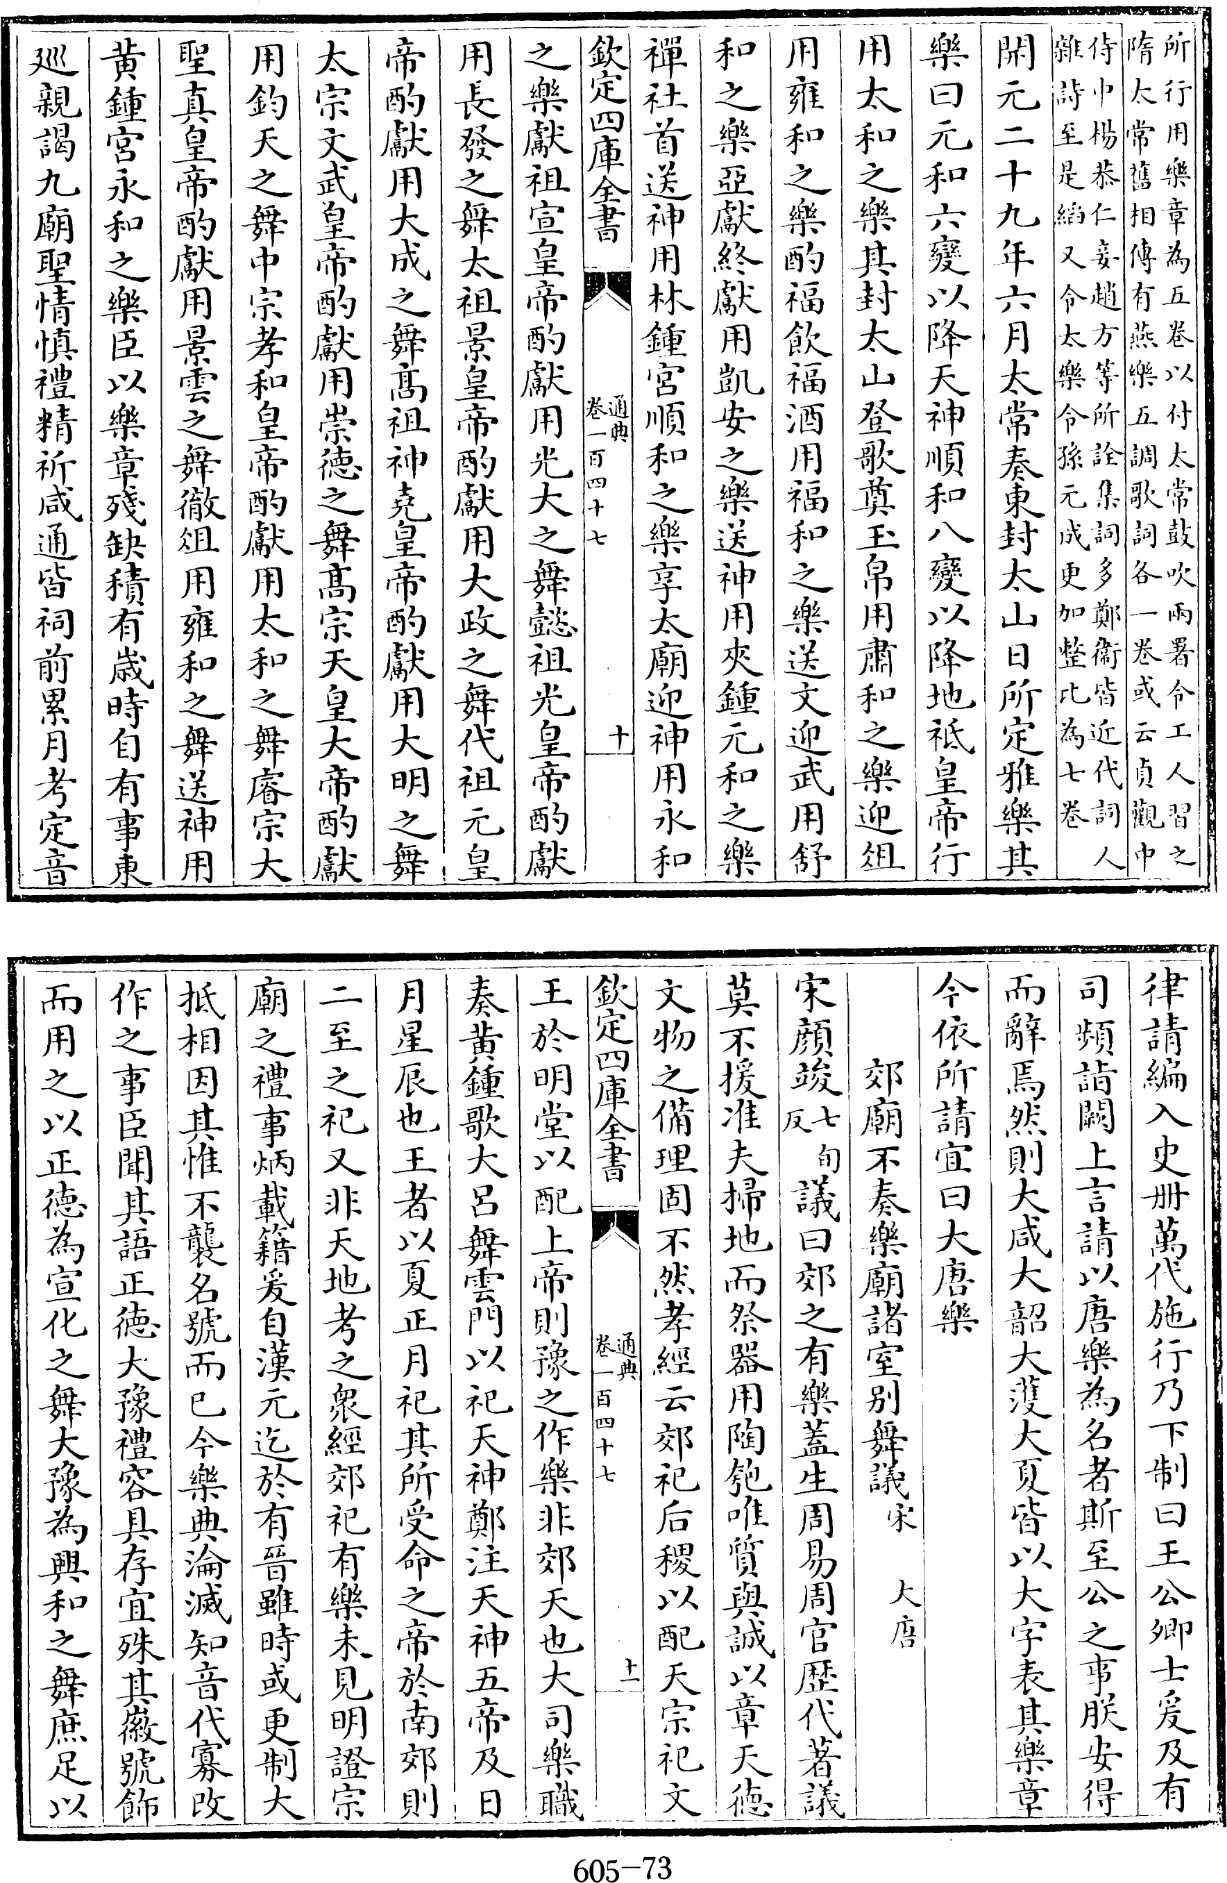 所行用樂章為五卷以付太常鼓吹兩署令工人習之
隋太常舊相傳有燕樂五調歌詞各一卷或云貞觀中
侍中楊恭仁妾趙方等所詮集詞多鄭衞皆近代詞人
雜詩至是縚又令太樂令孫元成更加整比為七卷
開元二十九年六月太常奏東封太山日所定雅樂其
樂曰元和六變以降天神順和八變以降地祇皇帝行
用太和之樂其封太山登歌奠玉帛用肅和之樂迎俎
用雍和之樂酌福飲福酒用福和之樂送文迎武用舒
和之樂亞獻終獻用凱安之樂送神用夾鍾元和之樂
禪社首送神用林鍾宮順和之樂享太廟迎神用永和
欽定四庫全書
通典
卷一百四十七
十
之樂獻祖宣皇帝酌獻用光大之舞懿祖光皇帝酌獻
用長發之舞太祖景皇帝酌獻用大政之舞代祖元皇
帝酌獻用大成之舞髙祖神堯皇帝酌獻用大明之舞
太宗文武皇帝酌獻用崇德之舞髙宗天皇大帝酌獻
用鈞天之舞中宗孝和皇帝酌獻用太和之舞睿宗大
聖真皇帝酌獻用景雲之舞徹俎用雍和之舞送神用
黃鍾宮永和之樂臣以樂章殘缺積有歲時自有事東
廵親謁九廟聖情慎禮精祈咸通皆祠前累月考定音
律請編入史册萬代施行乃下制曰王公卿士爰及有
司頻詣闕上言請以唐樂為名者斯至公之事朕安得
而辭焉然則大咸大韶大濩大夏皆以大字表其樂章
今依所請宜曰大唐樂
郊廟不奏樂廟諸室别舞議宋 大唐
宋顔竣七旬反議曰郊之有樂蓋生周易周官歴代著議
莫不援准夫掃地而祭器用陶匏唯質與誠以章天德
文物之備理固不然孝經云郊祀后稷以配天宗祀文
欽定四庫全書
通典
卷一百四十七
十一
王於明堂以配上帝則豫之作樂非郊天也大司樂職
奏黃鍾歌大呂舞雲門以祀天神鄭注天神五帝及日
月星辰也王者以夏正月祀其所受命之帝於南郊則
二至之祀又非天地考之衆經郊祀有樂未見明證宗
廟之禮事炳載籍爰自漢元迄於有晉雖時或更制大
抵相因其惟不襲名號而已今樂典淪滅知音代寡改
作之事臣聞其語正德大豫禮容具存宜殊其徽號飾
而用之以正德為宣化之舞大豫為興和之舞庶足以
605-73